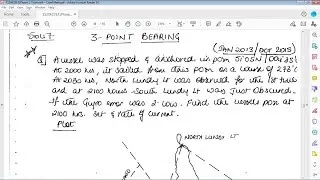 SOL7 3-POINT BEARING
(JAN 2013/OCT 2015)
Q] A vessel was stopped & anchored in posn 51°05N/004°35'
At 2000 hrs, it sailed from this posn on a course of 273°C
At 2030 hrs, North Lundy Lt was observed for the 1st time
and at 2100 hours South Lundy Lt was Just obscured.
If the Gyro error was 2 Low. Find the vessels posn at
2100 hrs. Set & rate of current.
Plot
NORTH LUNDY LT